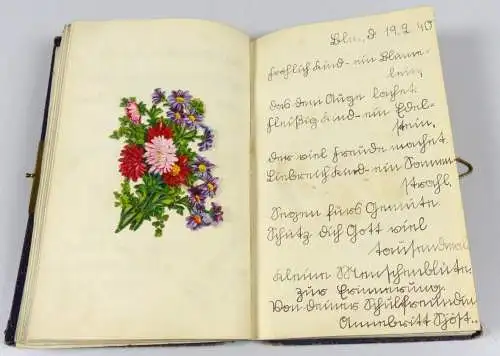 Bln, d 19.2.40
Fröhlich Kind - ein Blüme-
lein,
das dem Auge lachet.
Fleißig Kind - ein Edel-
stein,
der viel Freude machet.
Liebreich Kind - ein Sonnen
strahl,
Segen fürs Gemüte.
Schütz dich Gott viel
tausendmal
kleine Menschenblüte.
zur Erinnerung.
Von deiner Schulfreundin
Annebritt